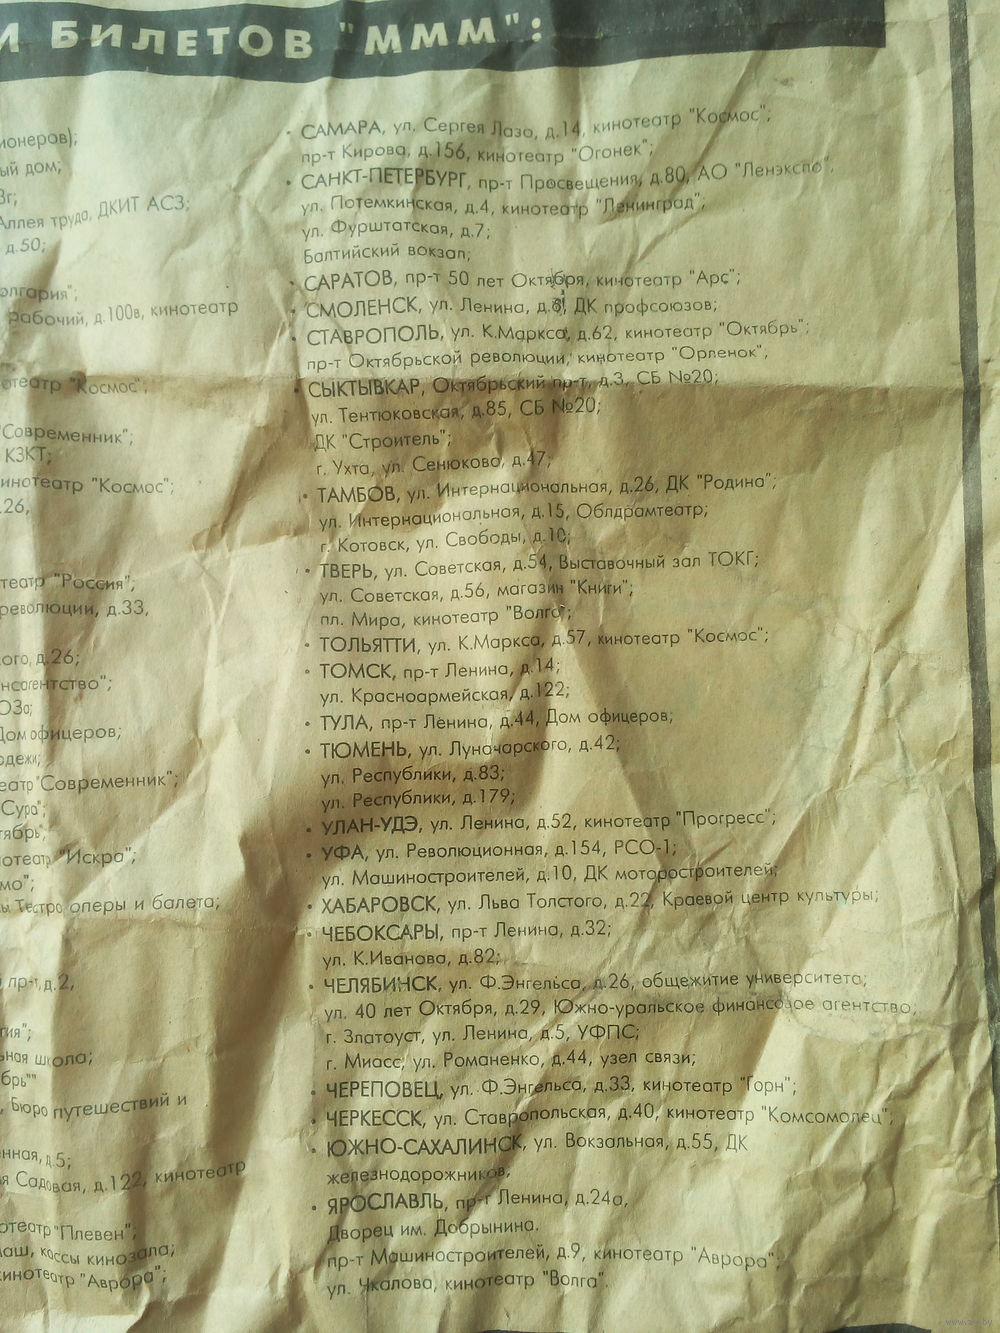 И БИЛЕТОВ "МММ":
ионеров);
ый дом;
Аллея труда, ДКИТ АСЗ;
д.50;
олгария";
рабочий, д.100в, кинотеатр
отеатр "Космос";
"Современник";
КЗКТ;
инотеатр "Космос";
.26,
театр "Россия";
революции, д.33,
ого, д.26;
нсагентство";
ОЗа;
Дом офицеров;
одежи;
еатр "Современник";
"Сура";
тябрь";
отеатр "Искра";
мо";
ы Театра оперы и балета;
й пр-т, д.2,
гия";
ьная школа;
брь""
, Бюро путешествий и
нная, д.5;
я Садовая, д.122, кинотеатр
отеатр "Плевен";
аш, кассы кинозала;
кинотеатр "Аврора";
• САМАРА, ул. Сергея Лазо, д.14, кинотеатр "Космос";
пр-т Кирова, д.156, кинотеатр "Огонек";
• САНКТ-ПЕТЕРБУРГ, пр-т Просвещения, д.80, АО "Ленэкспо",
ул. Потемкинская, д.4, кинотеатр "Ленинград";
ул. Фурштатская, д.7;
Балтийский вокзал;
• САРАТОВ, пр-т 50 лет Октября, кинотеатр "Арс";
• СМОЛЕНСК, ул. Ленина, ДК профсоюзов;
• СТАВРОПОЛЬ, ул. К.Маркса, д.62, кинотеатр "Октябрь";
пр-т Октябрьской революции, кинотеатр "Орленок",
• СЫКТЫВКАР, Октябрьский пр-т, д.3, СБ №20;
ул. Тентюковская, д.85, СБ №20;
ДК "Строитель";
г. Ухта, ул. Сенюкова, д.47;
• ТАМБОВ, ул. Интернациональная, д.26, ДК "Родина";
ул. Интернациональная, д.15, Облдрамтеатр;
г. Котовск, ул. Свободы, д.10;
• ТВЕРЬ, ул. Советская, д.54, Выставочный зал ТОКГ;
ул. Советская, д.56, магазин "Книги";
пл. Мира, кинотеатр "Волга";
• ТОЛЬЯТТИ, ул. К.Маркса, д.57, кинотеатр "Космос";
• ТОМСК, пр-т Ленина, д.14;
ул. Красноармейская, д.122;
• ТУЛА, пр-т Ленина, д.44, Дом офицеров;
• ТЮМЕНЬ, ул. Луначарского, д.42;
ул. Республики, д.83;
ул. Республики, д.179;
• УЛАН-УДЭ, ул. Ленина, д.52, кинотеатр "Прогресс";
• УФА, ул. Революционная, д.154, РСО-1;
ул. Машиностроителей, д.10, ДК моторостроителей;
• ХАБАРОВСК, ул. Льва Толстого, д.22, Краевой центр культуры;
• ЧЕБОКСАРЫ, пр-т Ленина, д.32;
ул. К.Иванова, д.82;
• ЧЕЛЯБИНСК, ул. Ф.Энгельса, д.26, общежитие университета;
ул. 40 лет Октября, д.29, Южно-уральское финансовое агентство;
г. Златоуст, ул. Ленина, д.5, УФПС;
г. Миасс, ул. Романенко, д.44, узел связи;
• ЧЕРЕПОВЕЦ, ул. Ф.Энгельса, д.33, кинотеатр "Горн";
• ЧЕРКЕССК, ул. Ставропольская, д.40, кинотеатр "Комсомолец";
• ЮЖНО-САХАЛИНСК, ул. Вокзальная, д.55, ДК
железнодорожников,
• ЯРОСЛАВЛЬ, пр-т Ленина, д.24а,
Дворец им. Добрынина.
пр-т Машиностроителей, д.9, кинотеатр "Аврора";
ул. Чкалова, кинотеатр "Волга".